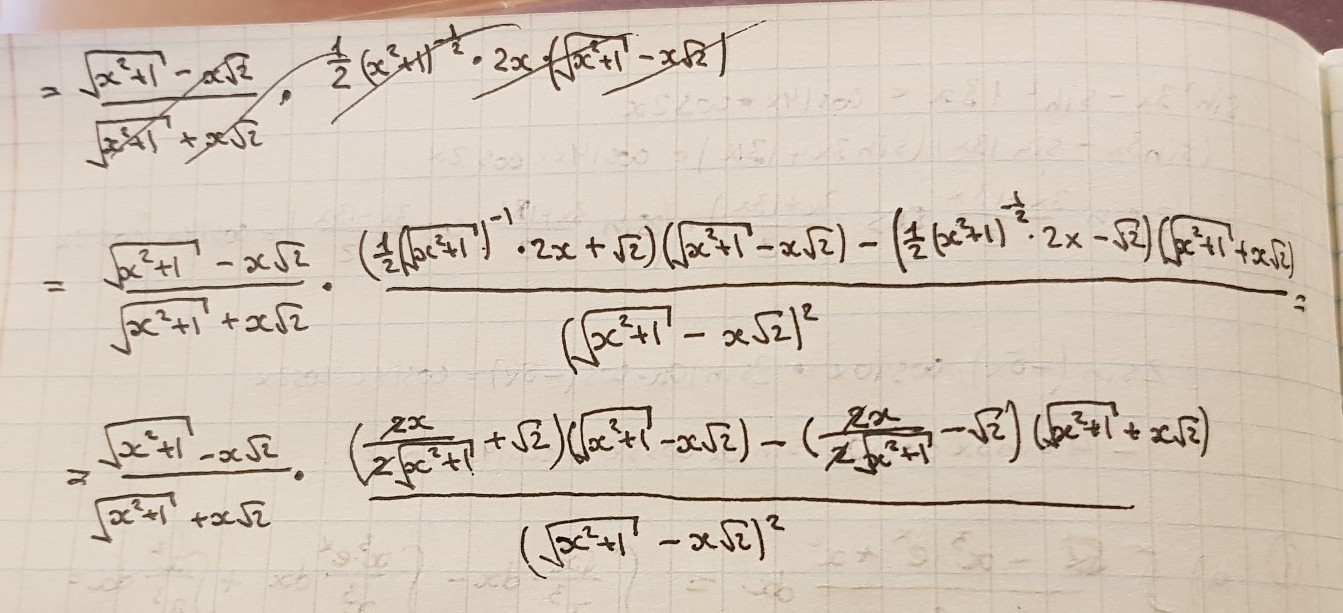 = (√(x²+1) - x√2)/(√(x²+1) + x√2) · 1/2 (x²+1)^(-1/2) · 2x · (√(x²+1) - x√2)
= (√(x²+1) - x√2)/(√(x²+1) + x√2) · ((1/2(√(x²+1))^(-1) · 2x + √2)(√(x²+1) - x√2) - (1/2(x²+1)^(-1/2) · 2x - √2)(√(x²+1) + x√2))/(√(x²+1) - x√2)² =
= (√(x²+1) - x√2)/(√(x²+1) + x√2) · ((2x/(2√(x²+1)) + √2)(√(x²+1) - x√2) - (2x/(2√(x²+1)) - √2)(√(x²+1) + x√2))/(√(x²+1) - x√2)²